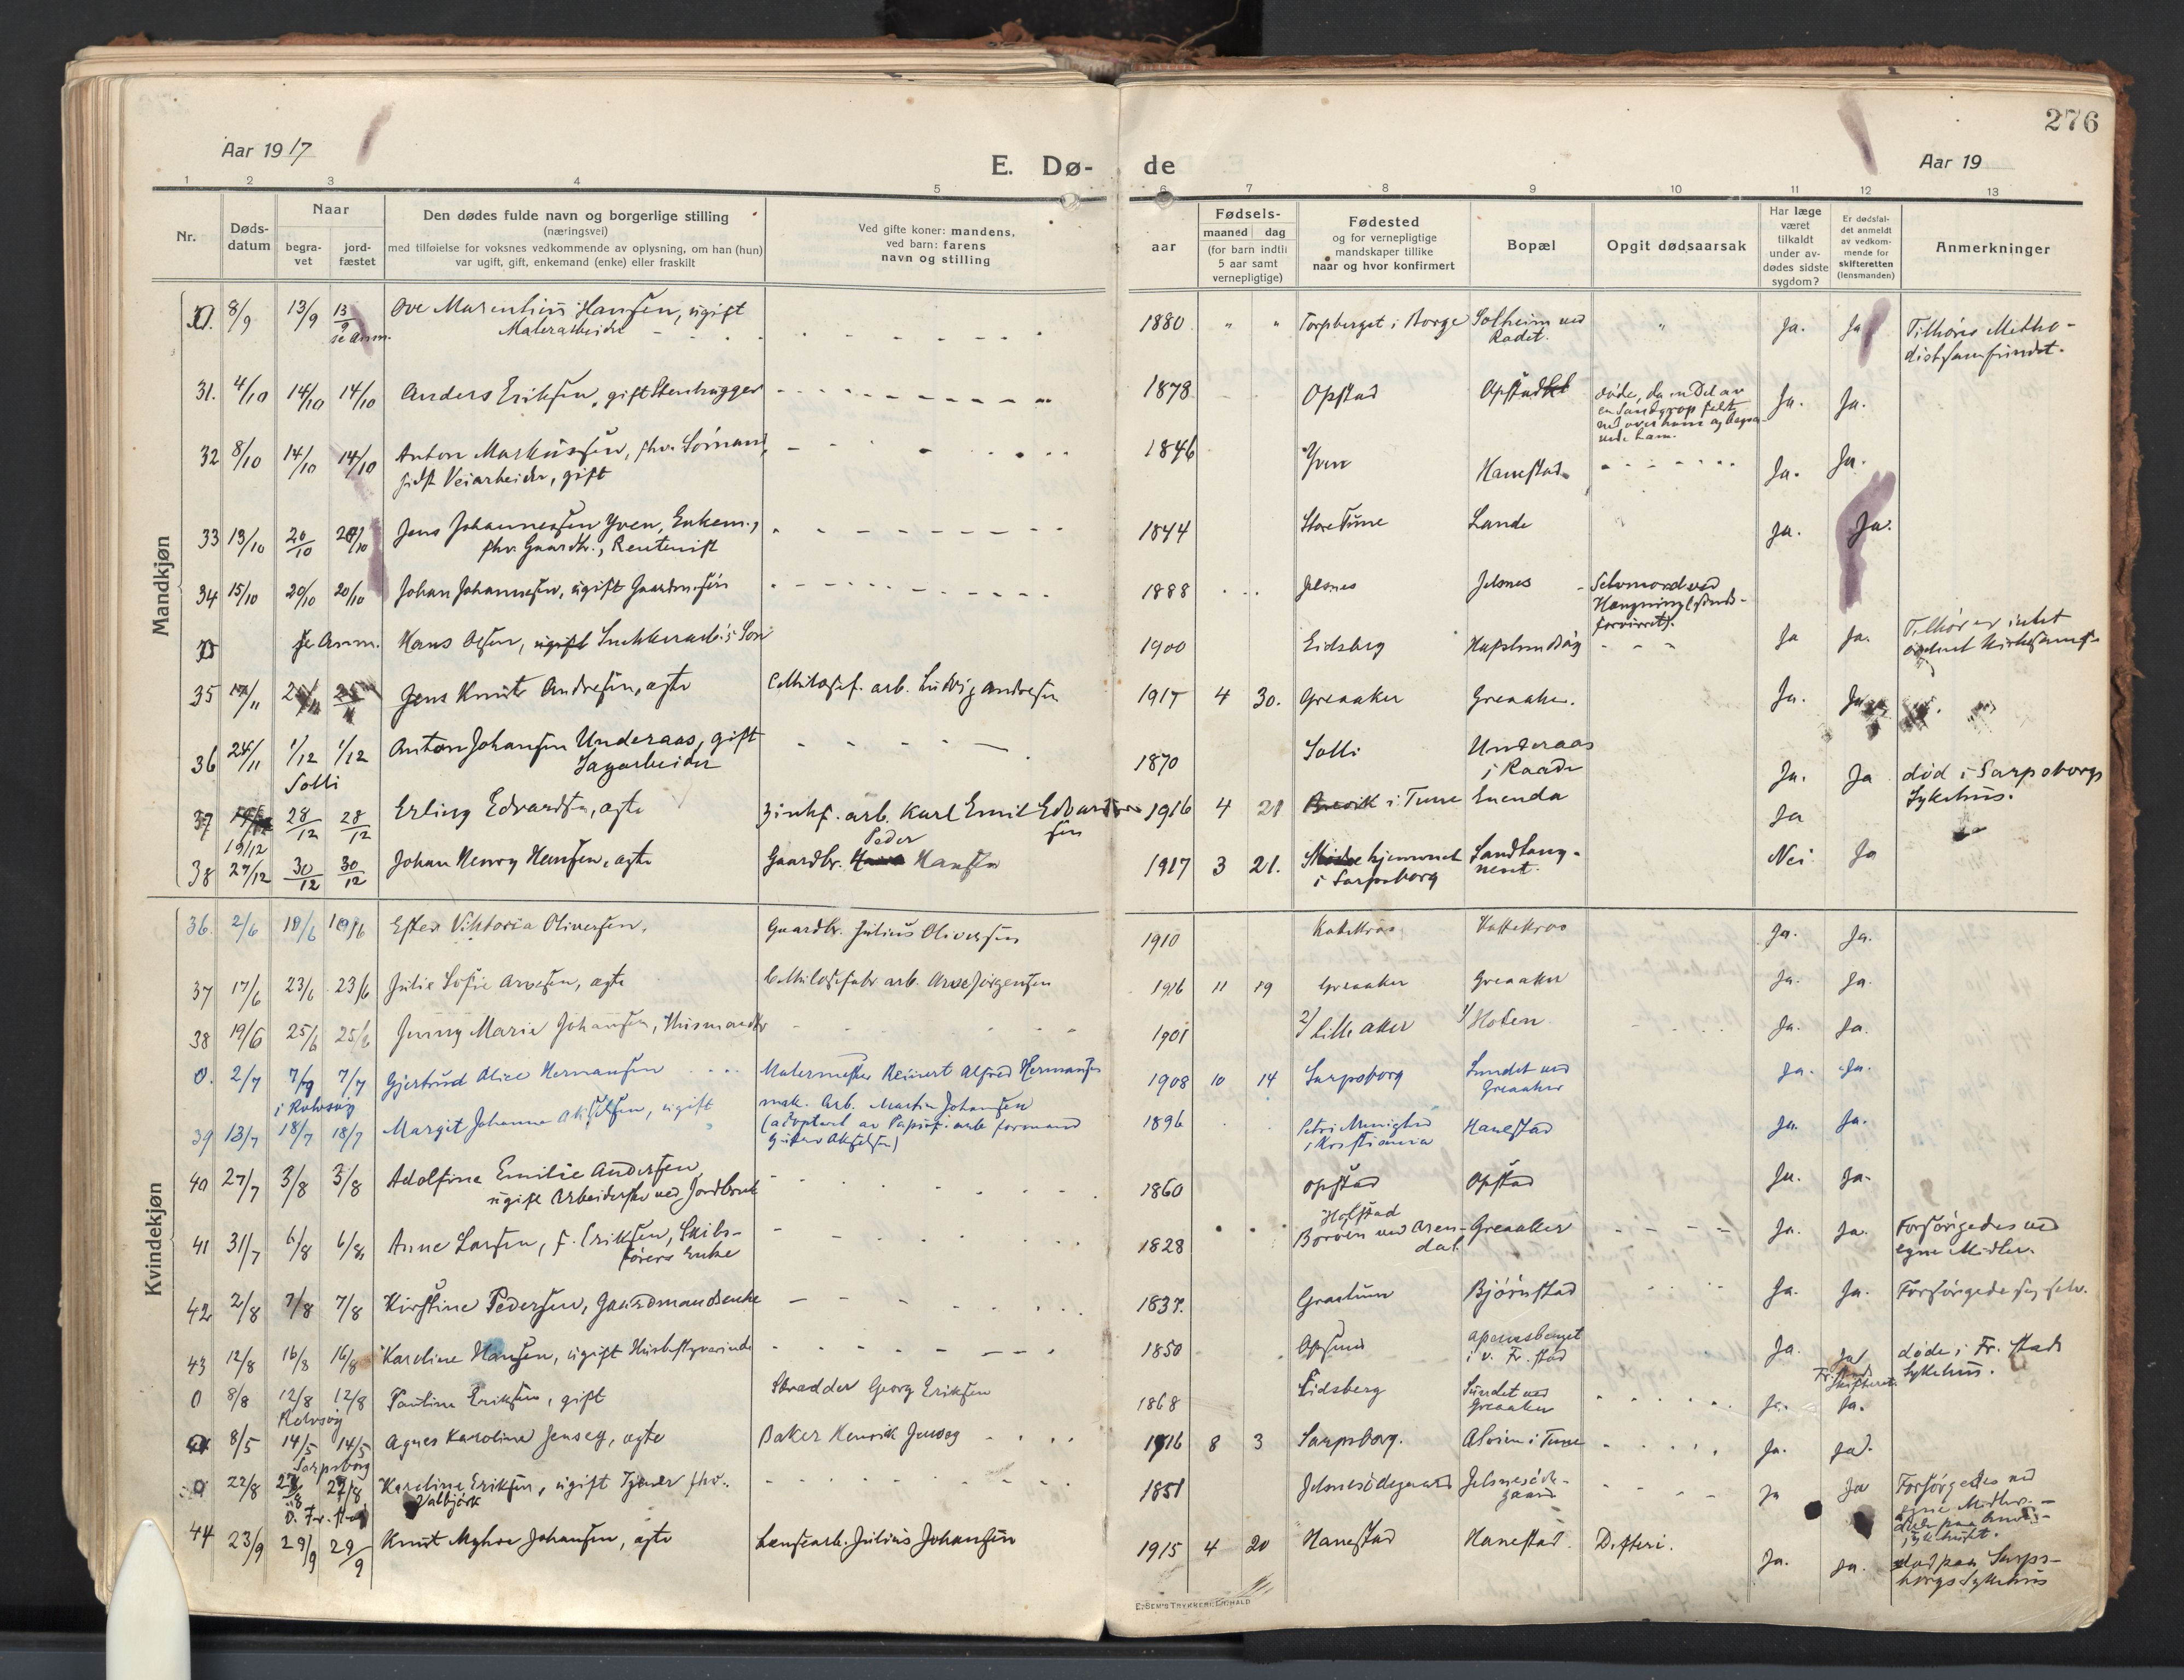 276
Aar 1917
E. Dø-
de
Aar 19
1 2 3 4 5 6 7 8 9 10 11 12 13
Nr.
Døds-
datum
Naar
begra-
vet
jord-
fæstet
Den dødes fulde navn og borgerlige stilling
(næringsvei)
med tilføielse for voksnes vedkommende av oplysning, om han (hun)
var ugift, gift, enkemand (enke) eller fraskilt
Ved gifte koner: mandens,
ved barn: farens
navn og stilling
aar
Fødsels-
maaned dag
(for barn indtil
5 aar samt
vernepligtige)
Fødested
og for vernepligtige
mandskaper tillike
naar og hvor konfirmert
Bopæl
Opgit dødsaarsak
Har læge
været
tilkaldt
under av-
dødes sidste
sygdom?
Er dødsfal-
det anmeldt
av vedkom-
mende for
skifteretten
(lensmanden)
Anmerkninger
Mandkjøn
8/9 13/9 13/9 Ove Marentius Hansen, ugift 1880 " " Torpberget i Borge Solheim ved " Ja. Ja Tilhøres Metho-
se Anm. Malerarbeider Radet. distsamfundet.
31. 4/10 14/10 14/10 Anders Eriksen, gift Stenhugger 1878 Opstad Opstad døde, da en Del av Ja. Ja.
en Sandgrop faldt
ned over ham og begra-
vede ham.
32 8/10 14/10 14/10 Anton Markussen, fhv. Sømand, 1846 Yven Hanestad Ja. Ja.
sidst Veiarbeider, gift
33 13/10 20/10 20/10 Jens Johannessen Yven, Enkem., 1844 Store Tune Lande Ja. Ja.
fhv. Gaardbr., Rentenist
34 15/10 20/10 20/10 Johan Johannesen, ugift Gaardm.søn 1888 Jelsnes Jelsnes Selvmord ved
Hængning (sinds-
forvirret).
se Anm. Hans Olsen, ugift Snekkerarb.'s Søn 1900 Eidsberg Hafslundsøg Ja Ja. Tilhører intet
ordnet Kirkesamf.
35 17/11 25/11 Jens Knut Andresen, ægte Cellulosef. arb. Ludvig Andresen 1917 4 30. Greaaker Greaaker. Ja.
36 24/11 1/12 1/12 Anton Johansen Underaas, gift 1870 Solli Underaas Ja. Ja død i Sarpsborgs
Solli Sagarbeider i Raade Sykehus.
37 28/12 28/12 Erling Edvardsen, ægte Zinkf. arb. Karl Emil Edvardsen 1916 4 21 i Tune Enenda Ja
19/12
38 27/12 30/12 30/12 Johan Henry Hansen, ægte Gaardbr. Peder Hansen 1917 3 21. hjemmet Sandtang- Nei Ja
i Sarpsborg nent.
Kvindekjøn
36. 2/6 10/6 10/6 Ester Viktoria Oliversen, Gaardbr. Julius Oliversen 1910 Kattekraa Kattekraa Ja. Ja.
37 17/6 23/6 23/6 Julie Sofie Arvesen, ægte Cellulosefabr arb. Arve Jørgensen 1916 11 19 Greaaker Greaaker Ja. Ja.
38 19/6 25/6 25/6 Jenny Marie Johansen, Husmandsdtr 1901 2/ Lille aker 1/ Holen Ja. Ja.
0. 2/7 7/7 7/7 Gjertrud Alice Hermansen Malermester Reinert Alfred Hermansen 1908 10 14 Sarpsborg Sundet ved Ja. Ja.
i Rolvsøy Greaaker
39 13/7 18/7 18/7 Margit Johanne Akselsen, ugift mek. Arb. Martin Johansen 1896 Petri Menighed Hanestad Ja. Ja.
(adoptert av Papirf. arb formand i Kristiania
Gustav Akselsen)
40 27/7 3/8 3/8 Adolfine Emilie Andersen, 1860 Opstad Opstad Ja. Ja.
ugift Arbeiderske ved Jordbruk
41 31/7 6/8 6/8 Anne Larsen, f. Eriksen, Skibs- 1828 Holstad Greaaker Ja. Ja. Forsørgedes ved
førers Enke Borøen ved Aren- egne Midler.
dal.
42 2/8 7/8 7/8 Kirstine Pedersen, Gaardmandsenke 1837. Graalum Bjørnstad Ja. Ja. Forsørgede sig selv.
43 12/8 16/8 16/8 Karoline Hansen, ugift Husbestyrerinde 1850 Opsund Apenesberget Ja. Ja døde i Fr. stads
i v. Fr. stad Skifteret. Sykehus.
0 8/8 12/8 12/8 Pauline Eriksen, gift Skrædder Georg Eriksen 1868 Eidsberg Sundet ved Ja. Ja.
Rolvsøy Greaaker
8/5 14/5 14/5 Agnes Karoline Jenseg, ægte Baker Henrik Jenseg 1916 8 3 Sarpsborg. Alvim i Tune Ja. Ja.
Sarpsborg
22/8 27/8 27/8 Karoline Eriksen, ugift Tjener fhv. 1851 Jelsnesødegaard Jelsnesøde- Ja Ja Forsørgedes ved
Ø. Fr. stad Valbjørk gaard egne Midler. —
44 23/9 29/9 29/9 Knut Myhre Johansen, ægte Lænsearb. Julius Johansen 1915 4 20 Hanestad Hanestad. Difteri. Ja. Ja. død paa Sarps-
borgs Sykehus
E. Sem's Trykkeri, Fr.hald